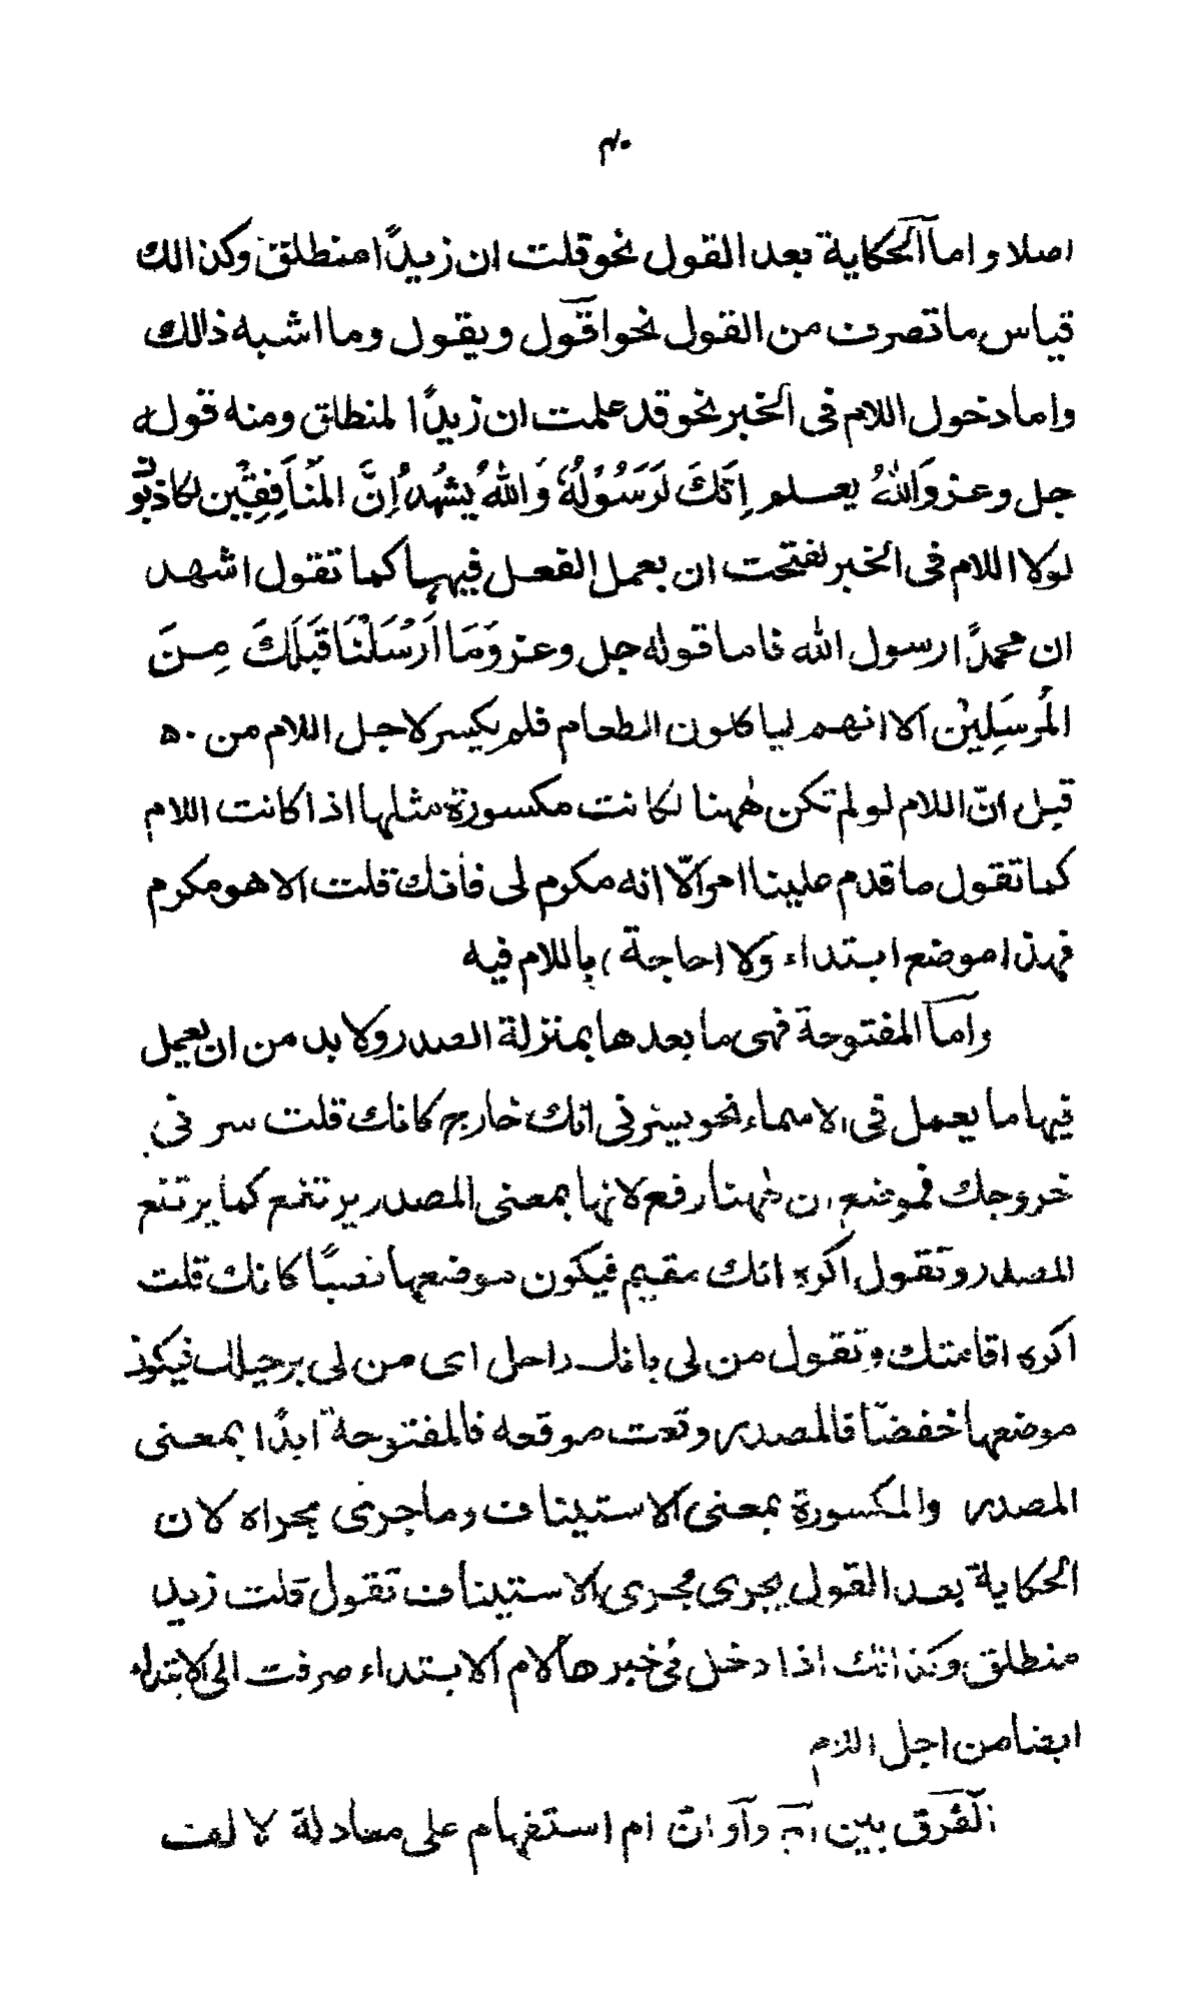 ۴۰
اصلا واما الحكاية بعد القول نحو قلت ان زيدًا منطلق وكذالك
قياس ما تصرف من القول نحو اقول ويقول وما اشبه ذالك
واما دخول اللام فى الخبر نحو قد علمت ان زيدًا لمنطلق ومنه قوله
جل وعز وَاللهُ يعلم اِنَّكَ لَرَسُوْلُهُ وَاللهُ يَشْهَدُ اِنَّ الْمُنَافِقِيْن لكاذبون
لولا اللام فى الخبر لفتحت ان بعمل الفعل فيها كما تقول اشهد
ان محمدًا رسول الله فاما قوله جل وعز وَمَا اَرْسَلْنَا قَبْلَكَ مِنَ
الْمُرْسَلِيْنَ الا انهم لياكلون الطعام فلم يكسر لاجل اللام من ٥٠
قبل انّ اللام لو لم تكن ههنا لكانت مكسورة مثلها اذا كانت اللام
كما تقول ما قدم علينا امر الّا انه مكرم لى فانك قلت الا هو مكرم
فهذا موضع ابتداء ولا (حاجة) باللام فيه
واما المفتوحة فهى ما بعدها بمنزلة الصدر ولا بد من ان يعمل
فيها ما يعمل فى الاسماء نحو يسرنى انك خارج كانك قلت سرنى
خروجك فموضع ان ههنا رفع لانها بمعنى المصدر يرتفع كما يرتفع
المصدر وتقول اكره انك مقيم فيكون موضعها نصبًا كانك قلت
اكره اقامتك وتقول من لى بانك راحل اى من لى برحيلك فيكون
موضعها خفضًا فالمصدر وقعت موقعه فالمفتوحة ابدًا بمعنى
المصدر والمكسورة بمعنى الاستيناف وما جرى مجراه لان
الحكاية بعد القول يجرى مجرى الاستيناف تقول قلت زيد
منطلق وكذالك اذا دخل فى خبرها لام الابتداء صرفت الى الابتداء
ايضا من اجل اللام
الفرق بين ام واو ان ام استفهام على معادلة لالف